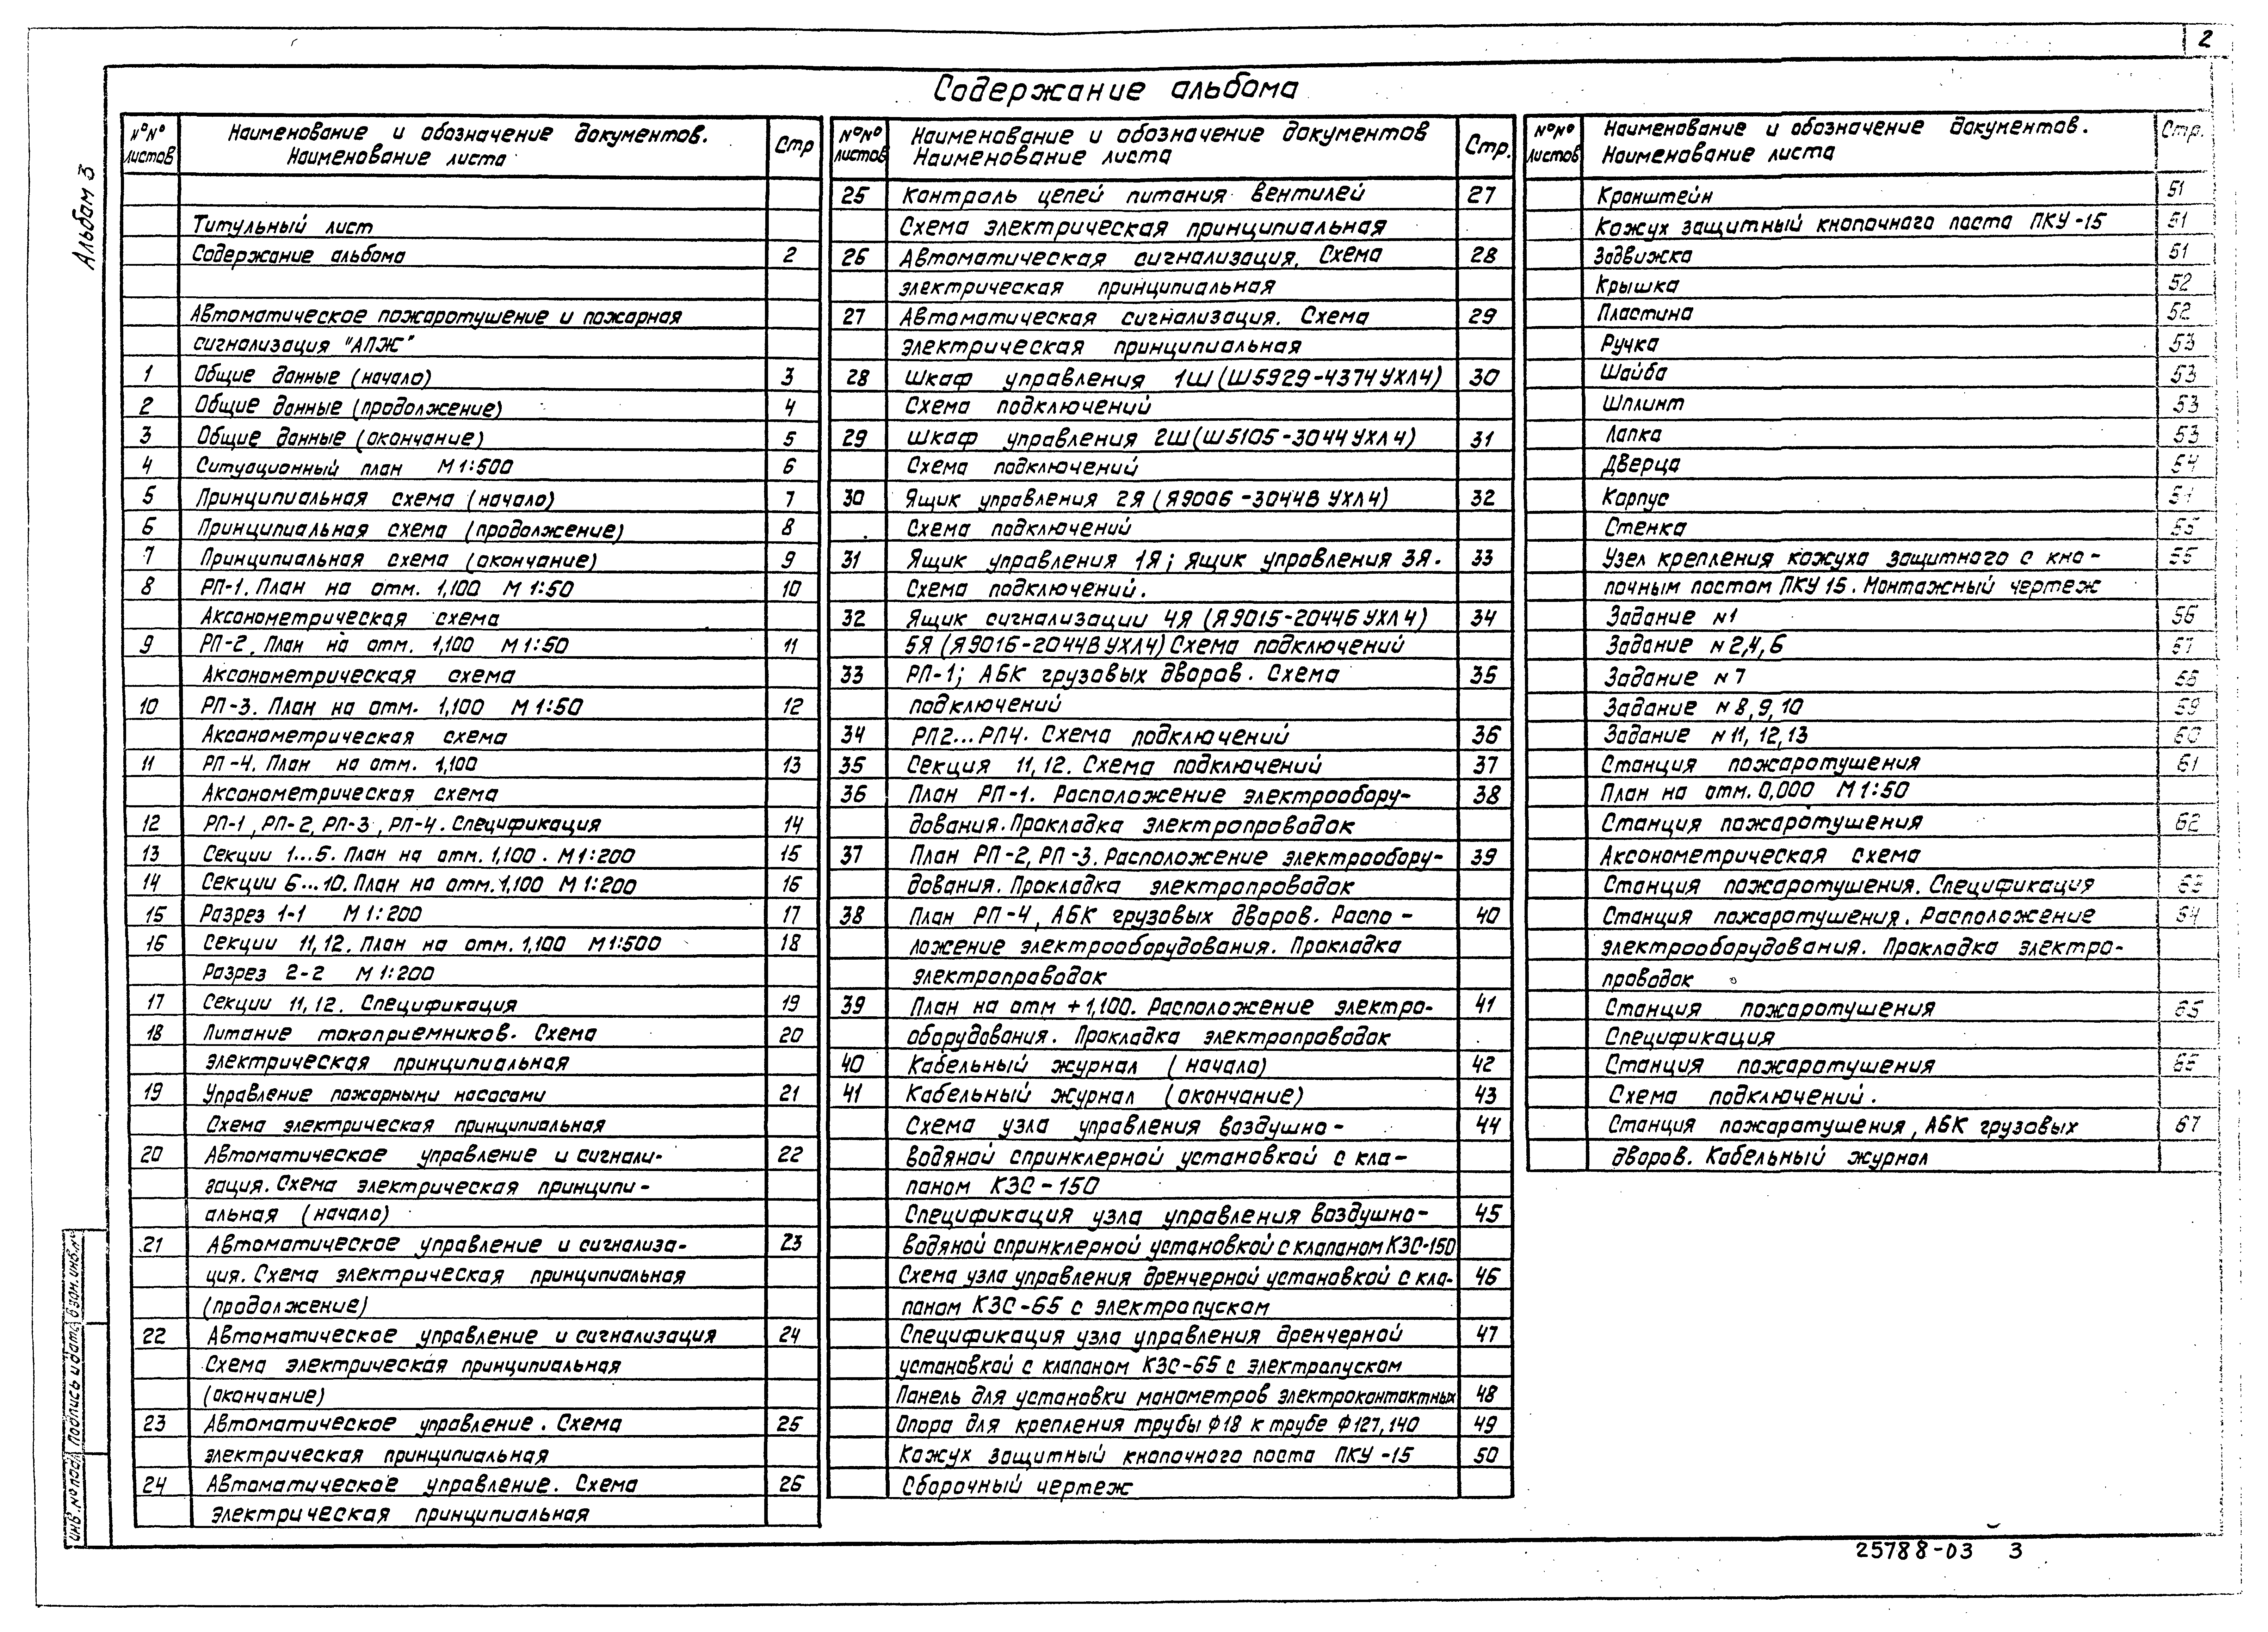 2
Содержание альбома
Альбом 3
№№ листов
Наименование и обозначение документов.
Наименование листа
Стр
Титульный лист
Содержание альбома 2
Автоматическое пожаротушение и пожарная
сигнализация "АПЖ"
1 Общие данные (начало) 3
2 Общие данные (продолжение) 4
3 Общие данные (окончание) 5
4 Ситуационный план М 1:500 6
5 Принципиальная схема (начало) 7
6 Принципиальная схема (продолжение) 8
7 Принципиальная схема (окончание) 9
8 РП-1. План на отм. 1,100 М 1:50 10
Аксонометрическая схема
9 РП-2. План на отм. 1,100 М 1:50 11
Аксонометрическая схема
10 РП-3. План на отм. 1,100 М 1:50 12
Аксонометрическая схема
11 РП-4. План на отм. 1,100 13
Аксонометрическая схема
12 РП-1, РП-2, РП-3, РП-4. Спецификация 14
13 Секции 1...5. План на отм. 1,100. М 1:200 15
14 Секции 6...10. План на отм. 1,100 М 1:200 16
15 Разрез 1-1 М 1:200 17
16 Секции 11, 12. План на отм. 1,100 М 1:500 18
Разрез 2-2 М 1:200
17 Секции 11, 12. Спецификация 19
18 Питание токоприемников. Схема 20
электрическая принципиальная
19 Управление пожарными насосами 21
Схема электрическая принципиальная
20 Автоматическое управление и сигнали- 22
зация. Схема электрическая принципи-
альная (начало)
21 Автоматическое управление и сигнализа- 23
ция. Схема электрическая принципиальная
(продолжение)
22 Автоматическое управление и сигнализация 24
Схема электрическая принципиальная
(окончание)
23 Автоматическое управление. Схема 25
электрическая принципиальная
24 Автоматическое управление. Схема 26
электрическая принципиальная
№№ листов
Наименование и обозначение документов
Наименование листа
Стр.
25 Контроль цепей питания вентилей 27
Схема электрическая принципиальная
26 Автоматическая сигнализация. Схема 28
электрическая принципиальная
27 Автоматическая сигнализация. Схема 29
электрическая принципиальная
28 Шкаф управления 1Ш (Ш5929-4374 УХЛ4) 30
Схема подключений
29 Шкаф управления 2Ш (Ш5105-3044 УХЛ 4) 31
Схема подключений
30 Ящик управления 2Я (Я9006-3044В УХЛ4) 32
Схема подключений
31 Ящик управления 1Я; ящик управления 3Я. 33
Схема подключений.
32 Ящик сигнализации 4Я (Я9015-2044Б УХЛ 4) 34
5Я (Я9016-2044В УХЛ4) Схема подключений
33 РП-1; АБК грузовых дворов. Схема 35
подключений
34 РП2...РП4. Схема подключений 36
35 Секция 11, 12. Схема подключений 37
36 План РП-1. Расположение электрообору- 38
дования. Прокладка электропроводок
37 План РП-2, РП-3. Расположение электрообору- 39
дования. Прокладка электропроводок
38 План РП-4, АБК грузовых дворов. Распо- 40
ложение электрооборудования. Прокладка
электропроводок
39 План на отм +1,100. Расположение электро- 41
оборудования. Прокладка электропроводок
40 Кабельный журнал (начало) 42
41 Кабельный журнал (окончание) 43
Схема узла управления воздушно- 44
водяной спринклерной установкой с кла-
паном КЗС-150
Спецификация узла управления воздушно- 45
водяной спринклерной установкой с клапаном КЗС-150
Схема узла управления дренчерной установкой с кла- 46
паном КЗС-65 с электропуском
Спецификация узла управления дренчерной 47
установкой с клапаном КЗС-65 с электропуском
Панель для установки манометров электроконтактных 48
Опора для крепления трубы Ф18 к трубе Ф127, 140 49
Кожух защитный кнопочного поста ПКУ-15 50
Сборочный чертеж
№№ листов
Наименование и обозначение документов.
Наименование листа
Стр.
Кронштейн 51
Кожух защитный кнопочного поста ПКУ-15 51
Задвижка 51
Крышка 52
Пластина 52
Ручка 53
Шайба 53
Шплинт 53
Лапка 53
Дверца 54
Корпус 54
Стенка 55
Узел крепления кожуха защитного с кно- 55
почным постом ПКУ 15. Монтажный чертеж
Задание №1 56
Задание №2,4,6 57
Задание №7 58
Задание №8, 9, 10 59
Задание №11, 12, 13 60
Станция пожаротушения 61
План на отм. 0,000 М 1:50
Станция пожаротушения 62
Аксонометрическая схема
Станция пожаротушения. Спецификация 63
Станция пожаротушения. Расположение 64
электрооборудования. Прокладка электро-
проводок
Станция пожаротушения 65
Спецификация
Станция пожаротушения 66
Схема подключений.
Станция пожаротушения, АБК грузовых 67
дворов. Кабельный журнал
Инв. № подл. Подпись и дата Взам. инв. №
25788-03 3